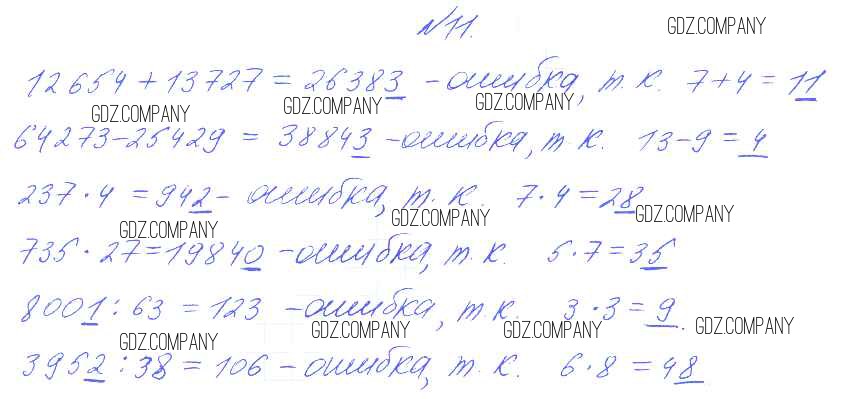 №11.
GDZ.COMPANY
12654+13727=26383 - ошибка, т. к. 7+4=11
GDZ.COMPANY GDZ.COMPANY GDZ.COMPANY
64273-25429 = 38843 - ошибка, т. к. 13-9=4
237·4 = 942 - ошибка, т. к. 7·4=28
GDZ.COMPANY GDZ.COMPANY GDZ.COMPANY
735·27=19840 - ошибка, т. к. 5·7=35
8001:63 = 123 - ошибка, т. к. 3·3=9.
GDZ.COMPANY GDZ.COMPANY GDZ.COMPANY GDZ.COMPANY
3952:38=106 - ошибка, т. к. 6·8=48